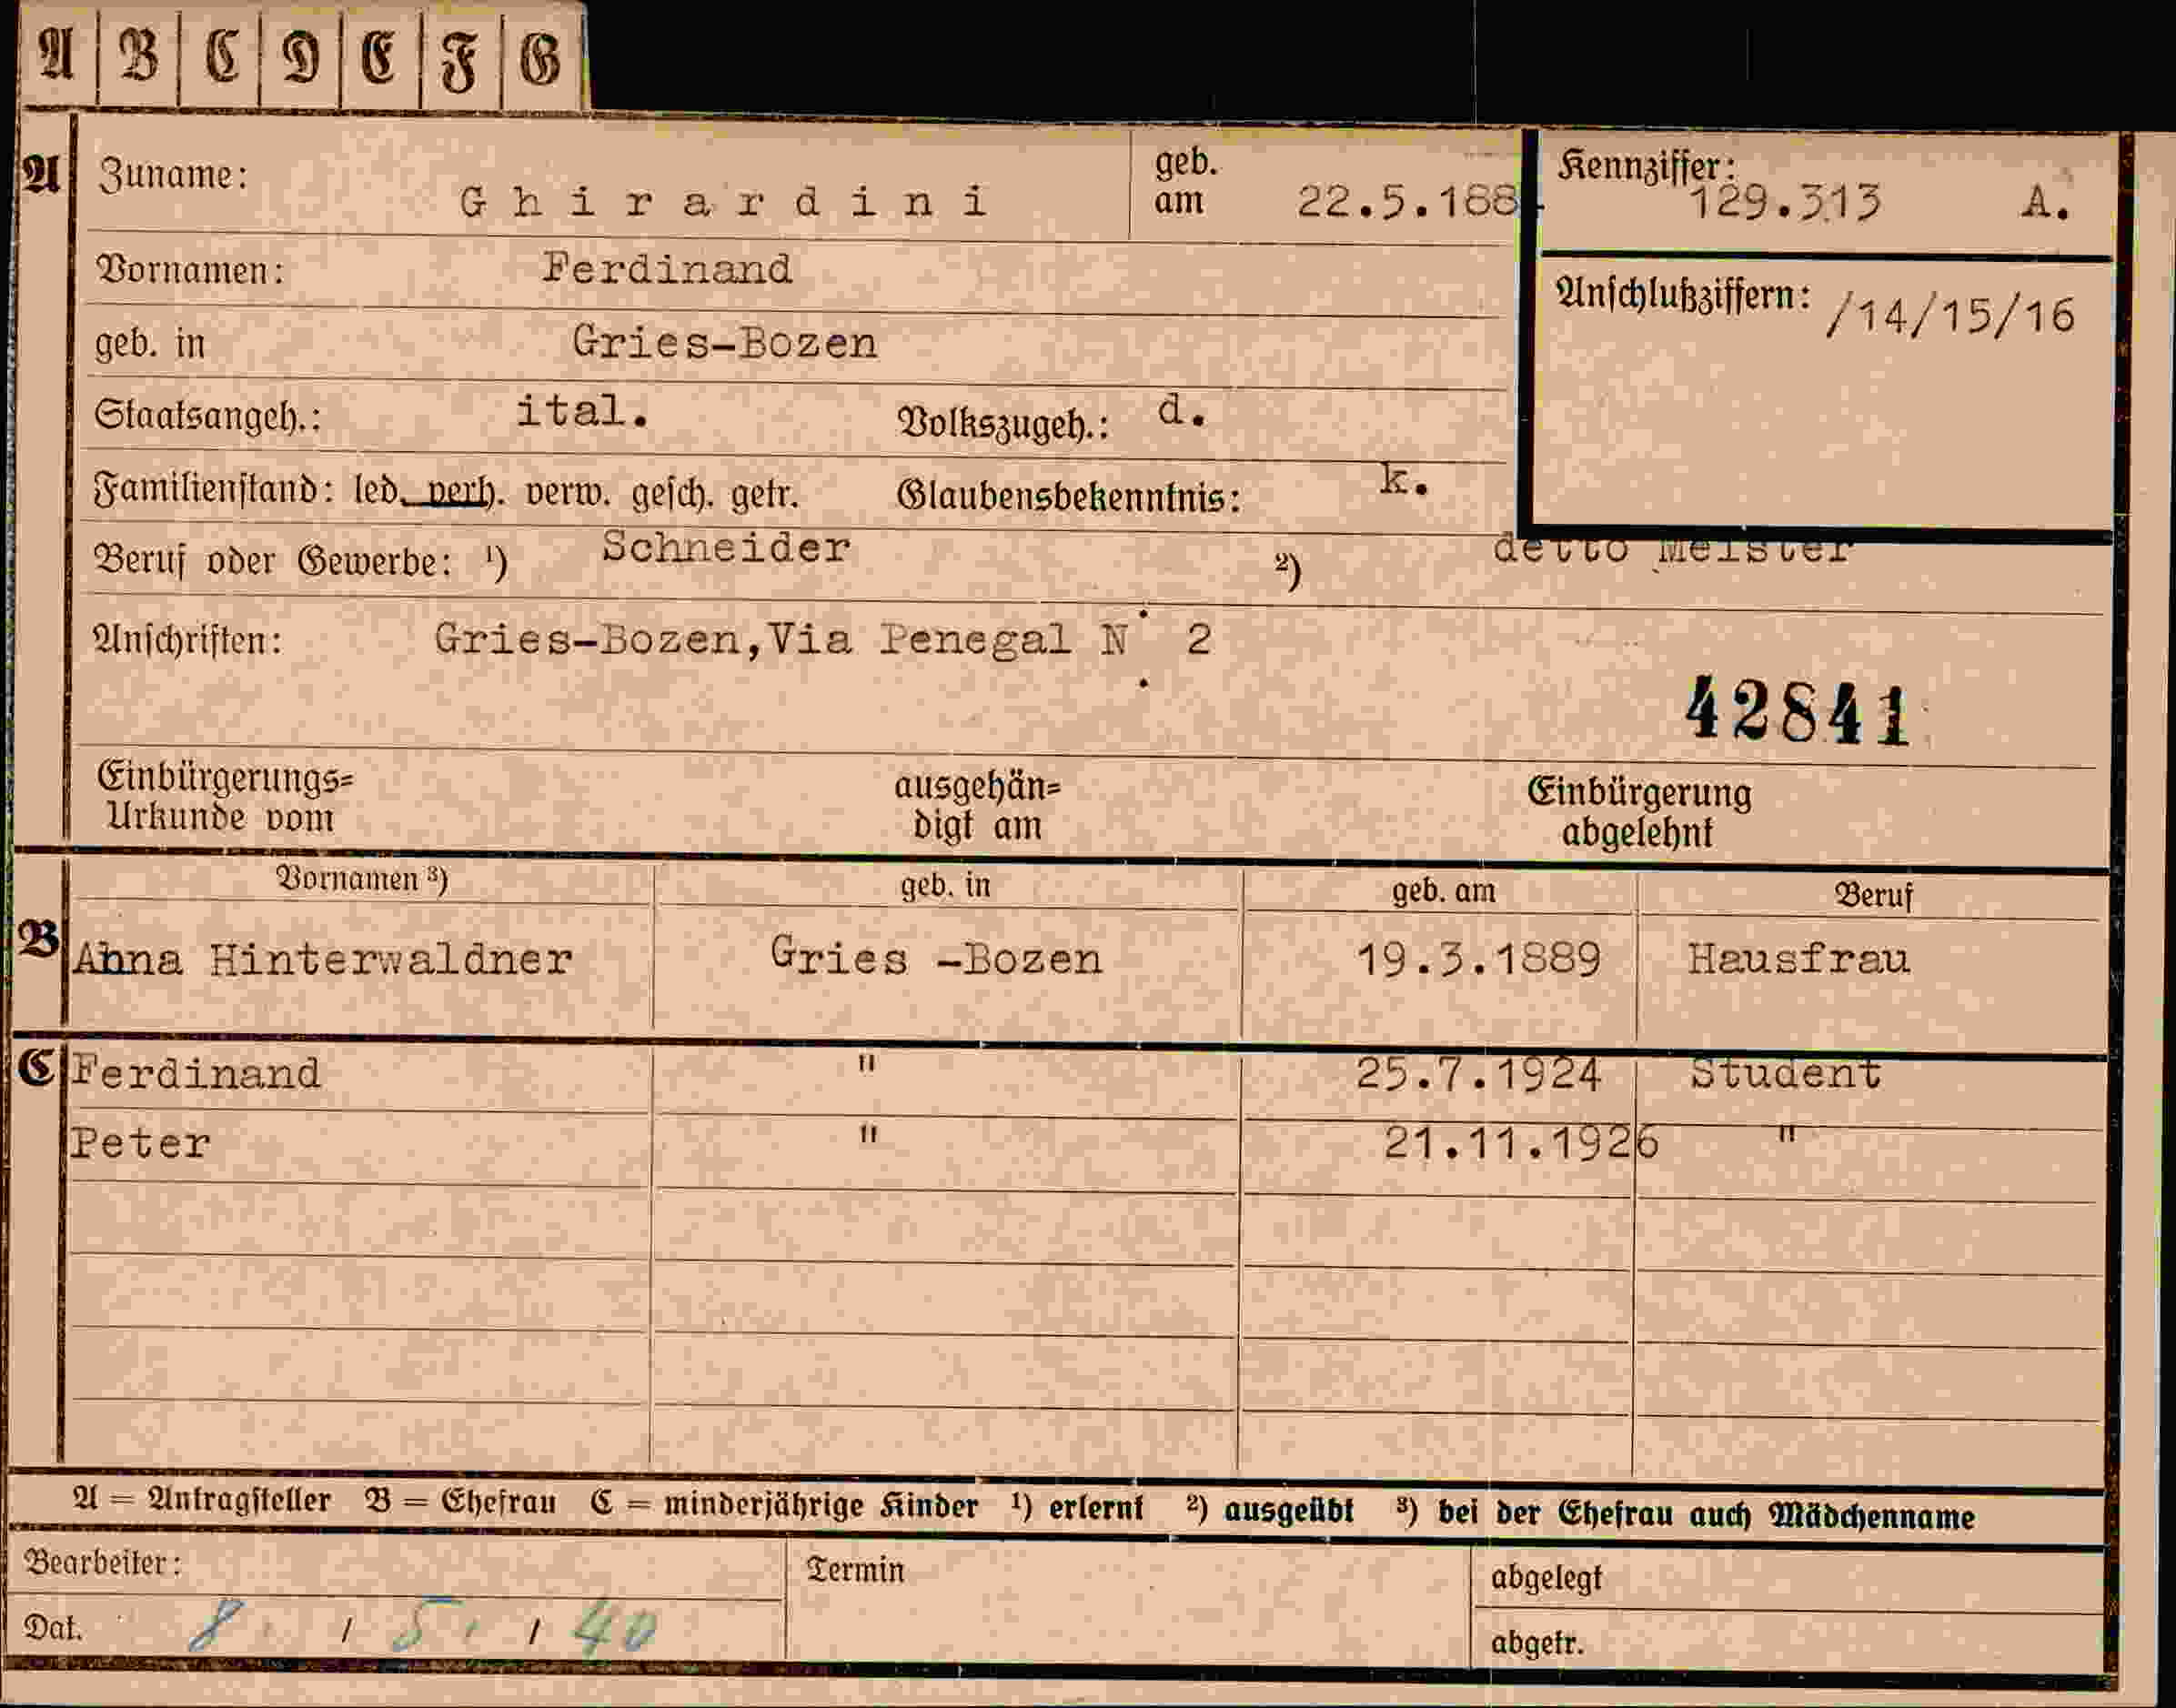 A B C D E F G
A Zuname: Ghirardini geb. am 22.5.188 Kennziffer: 129.313 A.
Vornamen: Ferdinand
Anschlußziffern: /14/15/16
geb. in Gries-Bozen
Staatsangeh.: ital. Volkszugeh.: d.
Familienstand: led. verh. verw. gesch. getr. Glaubensbekenntnis: k.
Beruf oder Gewerbe: ¹) Schneider ²) detto Meister
Anschriften: Gries-Bozen,Via Penegal N° 2
42841
Einbürgerungs= Urkunde vom ausgehän= digt am Einbürgerung abgelehnt
Vornamen ³) geb. in geb. am Beruf
B Anna Hinterwaldner Gries -Bozen 19.3.1889 Hausfrau
C Ferdinand " 25.7.1924 Student
Peter " 21.11.1926 "
A = Antragsteller B = Ehefrau C = minderjährige Kinder ¹) erlernt ²) ausgeübt ³) bei der Ehefrau auch Mädchenname
Bearbeiter: Termin abgelegt
Dat. 8. / 5. / 40 abgetr.